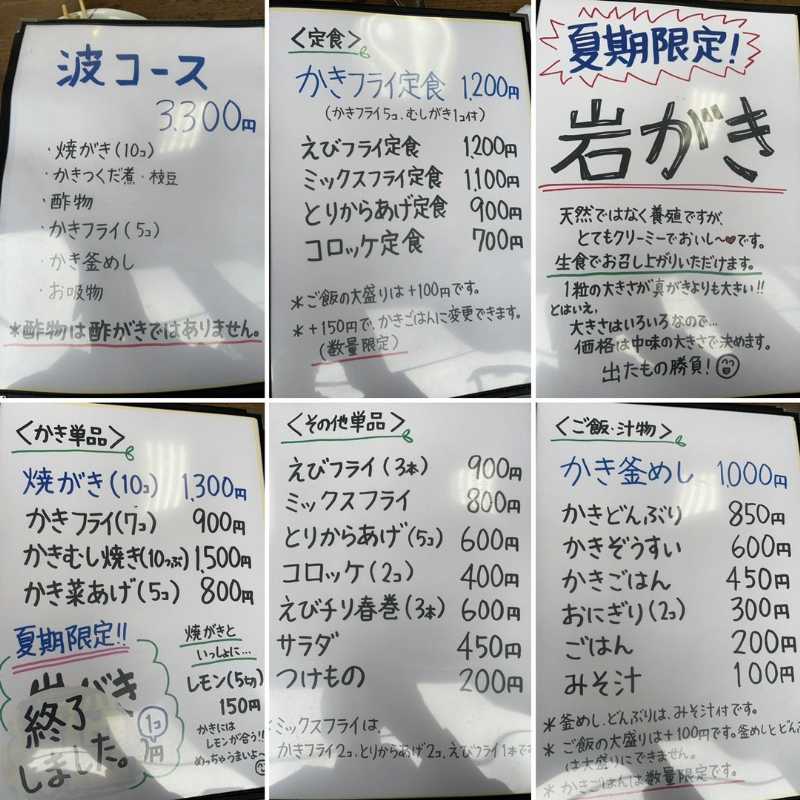 波コース
3,300円
・焼がき(10コ)
・かきつくだ煮・枝豆
・酢物
・かきフライ(5コ)
・かき釜めし
・お吸物
*酢物は酢がきではありません。
<定食>
かきフライ定食 1,200円
(かきフライ5コ、むしがき1コ付)
えびフライ定食 1,200円
ミックスフライ定食 1,100円
とりからあげ定食 900円
コロッケ定食 700円
*ご飯の大盛りは+100円です。
*+150円で、かきごはんに変更できます。
(数量限定)
夏期限定!
岩がき
天然ではなく養殖ですが、
とてもクリーミーでおいし〜♥です。
生食でお召し上がりいただけます。
1粒の大きさが真がきよりも大きい!!
とはいえ、
大きさはいろいろなので…
価格は中味の大きさで決めます。
出たもの勝負!
<かき単品>
焼がき(10コ) 1,300円
かきフライ(7コ) 900円
かきむし焼き(10つぶ) 1,500円
かき菜あげ(5コ) 800円
夏期限定!!
岩がき
終了
しました。
1コ
円
焼がきと
いっしょに…
レモン(5切)
150円
かきには
レモンが合う!!
めっちゃうまいよ〜
<その他単品>
えびフライ(3本) 900円
ミックスフライ 800円
とりからあげ(5コ) 600円
コロッケ(2コ) 400円
えびチリ春巻(3本) 600円
サラダ 450円
つけもの 200円
ミックスフライは、
かきフライ2コ、とりからあげ2コ、えびフライ1本です
<ご飯・汁物>
かき釜めし 1,000円
かきどんぶり 850円
かきぞうすい 600円
かきごはん 450円
おにぎり(2コ) 300円
ごはん 200円
みそ汁 100円
*釜めし、どんぶりは、みそ汁付です。
*ご飯の大盛りは+100円です。釜めしとどん
は大盛りにできません。
*かきごはんは数量限定です。